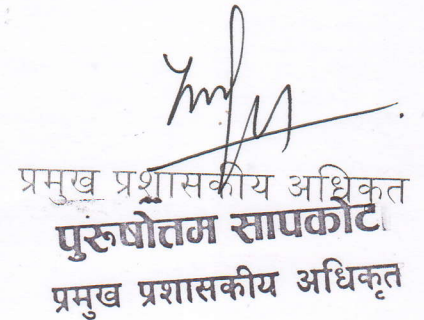 प्रमुख प्रशासकीय अधिकृत
पुरूषोत्तम सापकोटा
प्रमुख प्रशासकीय अधिकृत